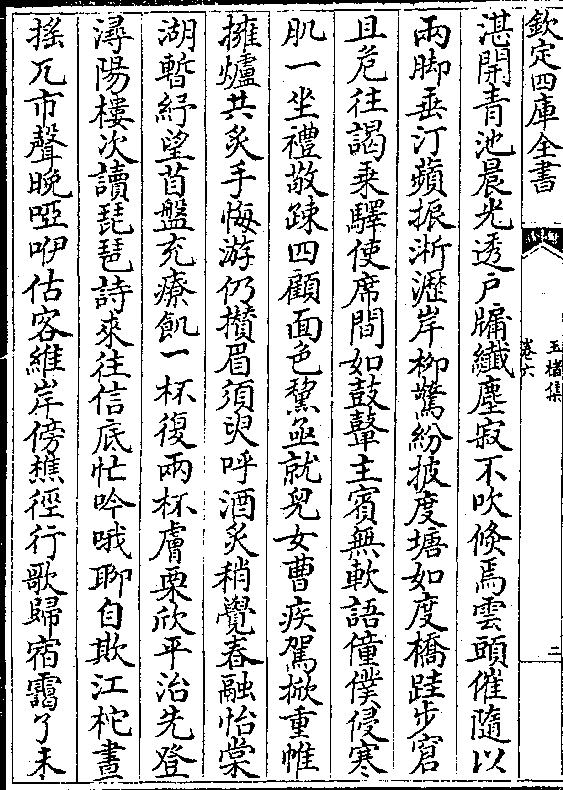 欽定四庫全書
玉楮集
卷六
二
湛開青池晨光透戶牖纖塵寂不吹倐焉雲頭催隨以
兩脚垂汀蘋振淅瀝岸柳驚紛披度塘如度橋跬步窘
且危往謁乗驛使席間如鼓鼙主賓無軟語僮僕侵寒
肌一坐禮敬踈四顧面色黧亟就兒女曹疾駕掀重帷
擁爐共炙手悔游仍攅眉須臾呼酒炙稍覺春融怡棠
湖暫紓望苜盤充療飢一杯復兩杯膚栗欣平治先登
潯陽樓次讀琵琶詩來往信底忙吟哦聊自欺江柁晝
揺兀市聲晚啞咿估客維岸傍樵徑行歌歸宿靄了未